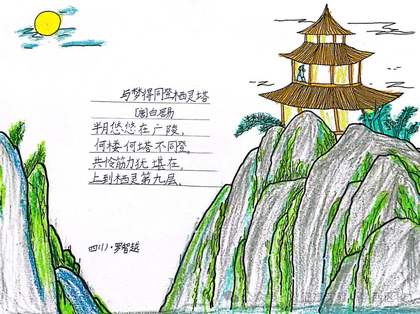 与梦得同登栖灵塔
[唐]白居易
半月悠悠在广陵,
何楼何塔不同登。
共怜筋力犹堪在,
上到栖灵第九层。
四川·罗智越